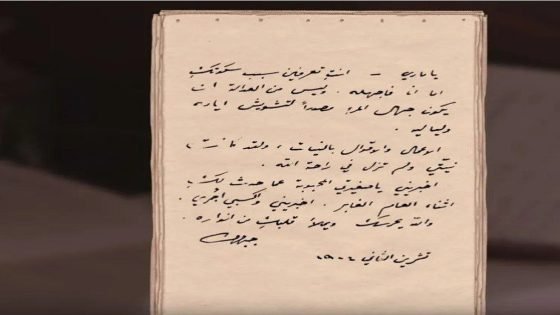 يا ماري – انتِ تعرفين سبب سكوتكِ
اما انا فاجهله . وليس من العدالة ان
يكون جهل المرء مصدراً لتشويش ايامه
ولياليه .
الاعمال والاقوال بالنيات ، ولقد كانت
نيتي ولم تزل في راحة الله .
اخبريني يا صغيرتي المحبوبة عما حدث لكِ
اثناء العام الغابر . اخبريني واكسبي اجري .
والله يحرسكِ ويملأ قلبكِ من انواره .
جبران
تشرين الثاني